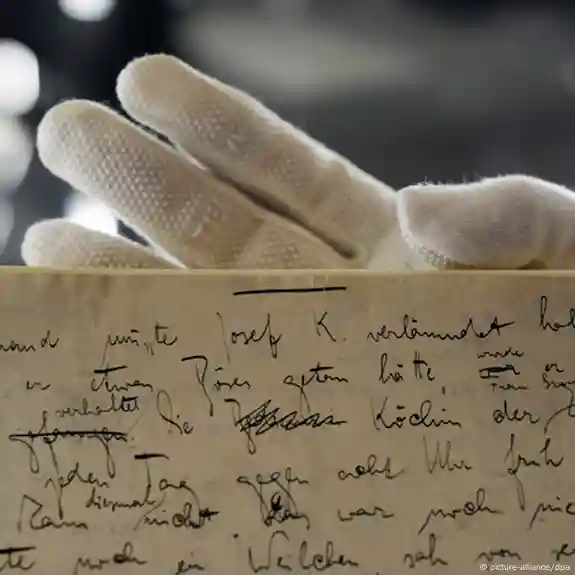 mand mußte Josef K. verläumdet hab
wurde
er etwas Böses getan hätte, war er
verhaftet
gefangen. Die Köchin der
jeden Tag gegen acht Uhr früh
diesmal
kam nicht. Das war noch nie
te noch ein Weilchen, sah von se
© picture-alliance/dpa